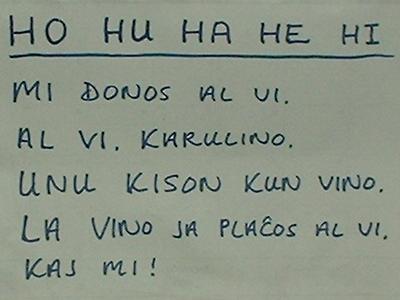 HO HU HA HE HI
MI DONOS AL VI.
AL VI. KARULINO.
UNU KISON KUN VINO.
LA VINO JA PLAĈOS AL VI.
KAJ MI!